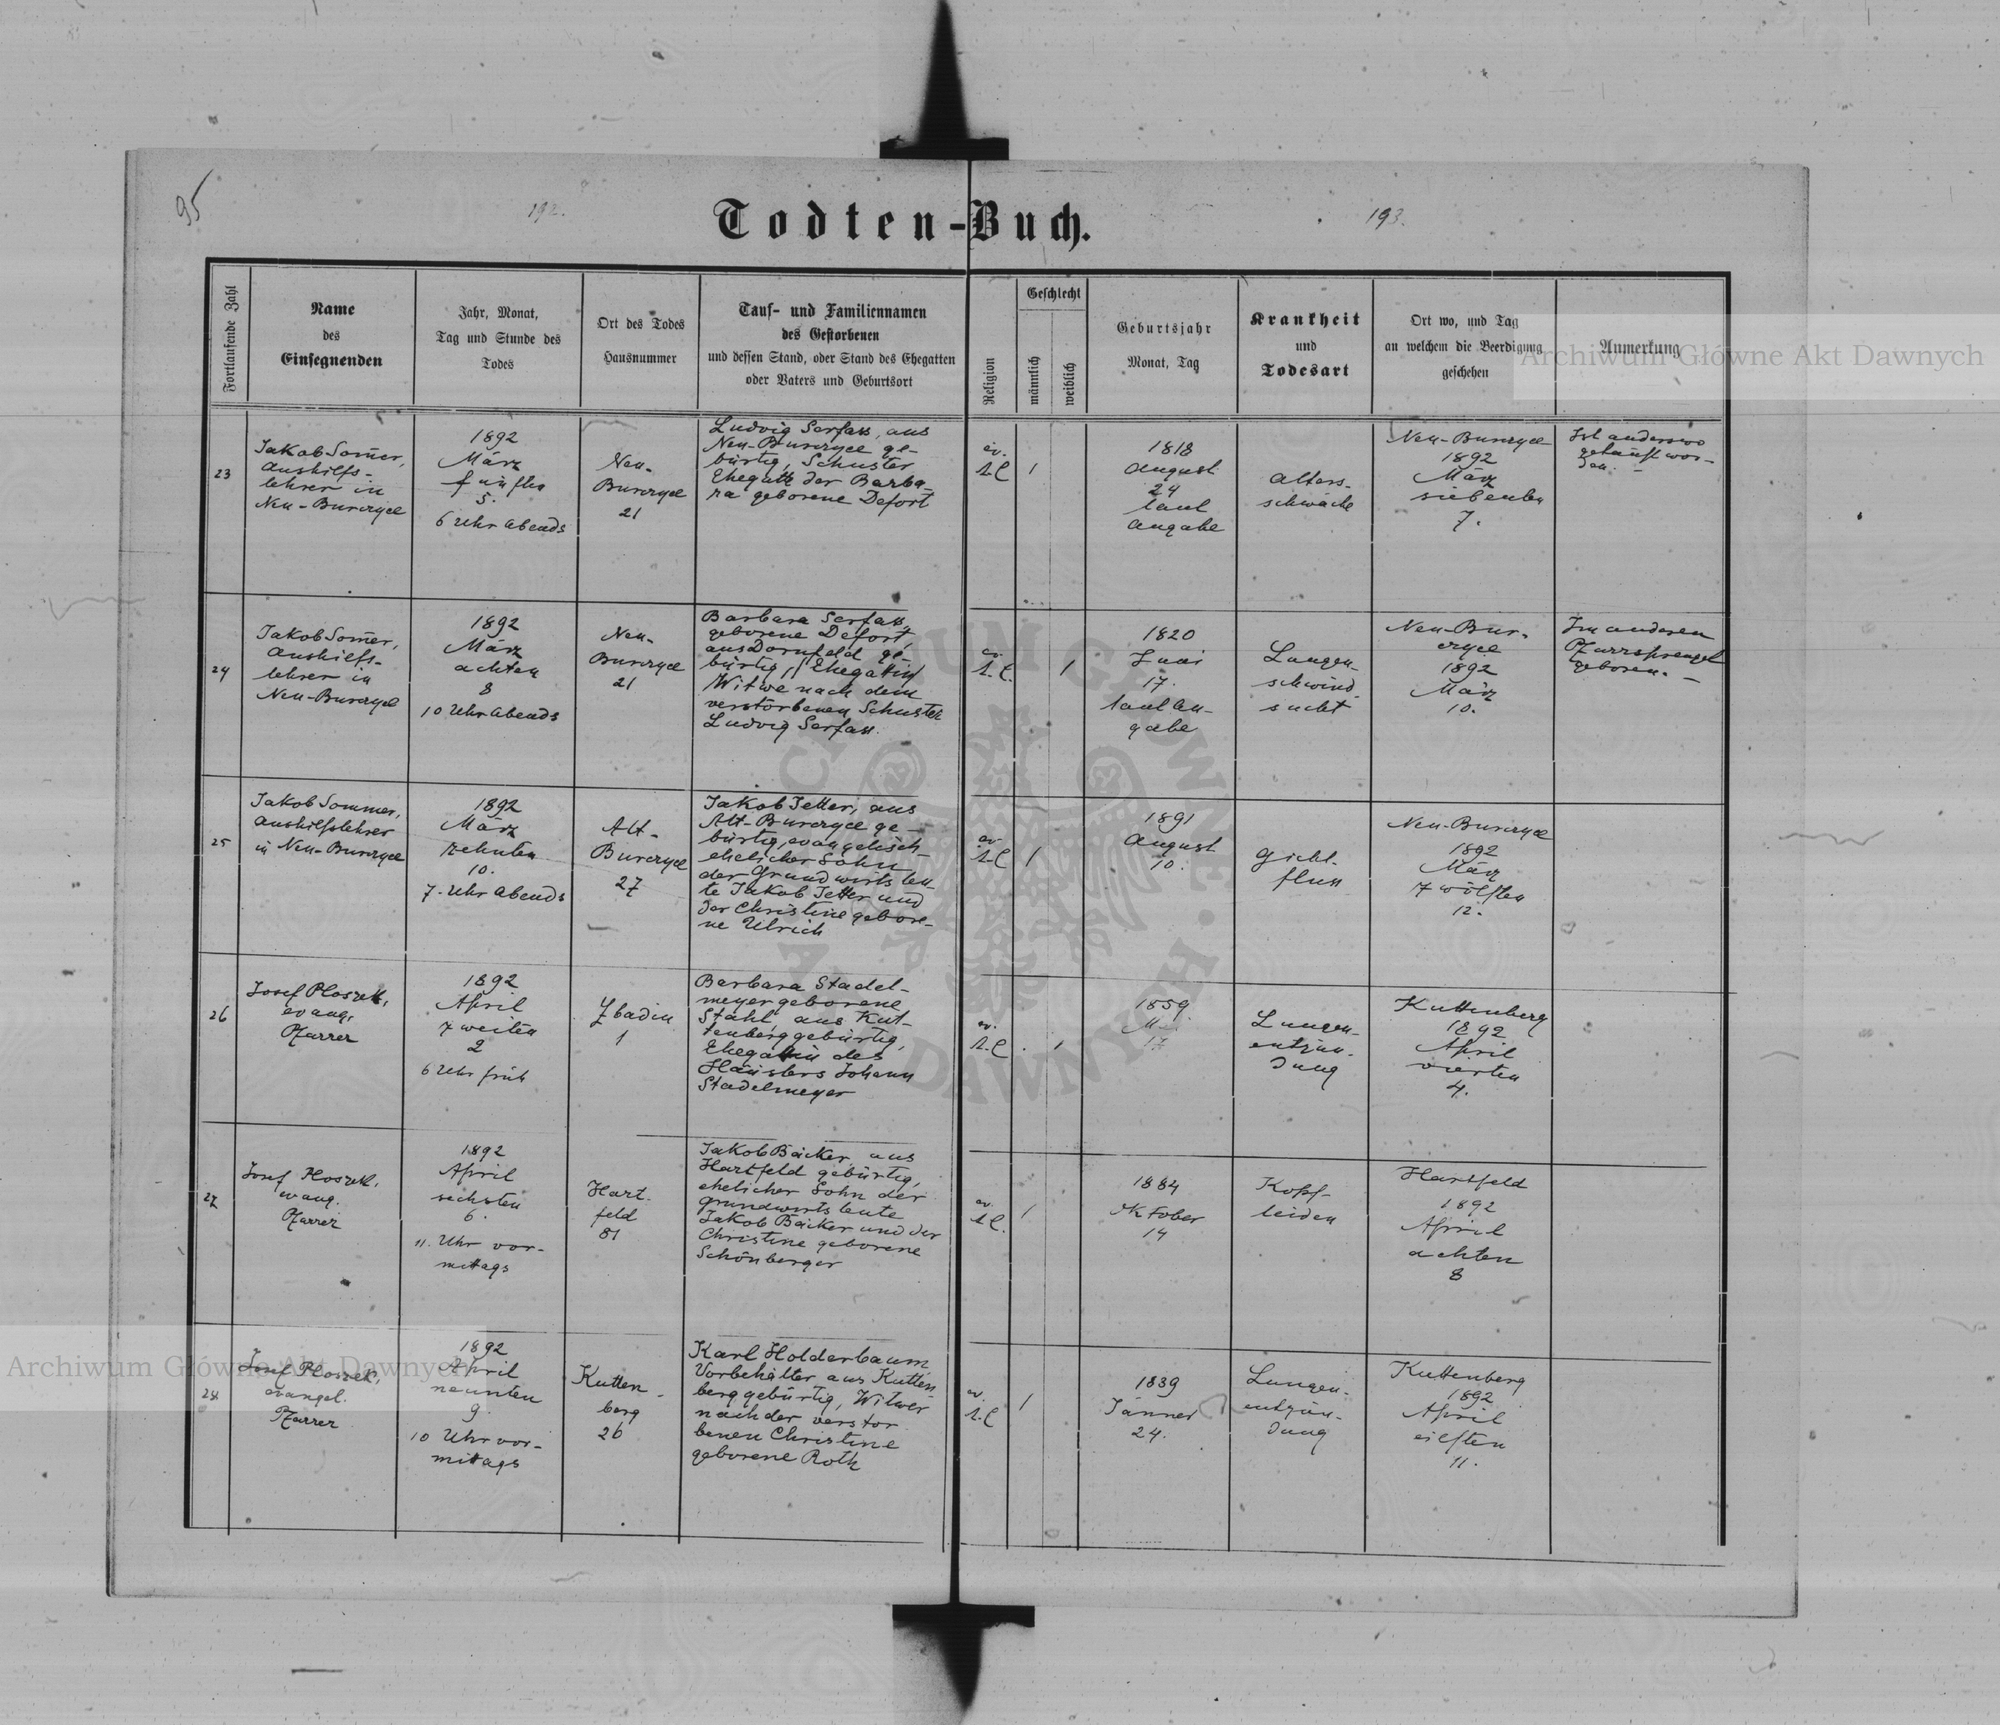 95
192.
193.
Todten-Buch.
Fortlaufende Zahl
Name
des
Einsegnenden
Jahr, Monat,
Tag und Stunde des
Todes
Ort des Todes
Hausnummer
Tauf- und Familiennamen
des Gestorbenen
und dessen Stand, oder Stand des Ehegatten
oder Vaters und Geburtsort
Religion
Geschlecht
männlich
weiblich
Geburtsjahr
Monat, Tag
Krankheit
und
Todesart
Ort wo, und Tag
an welchem die Beerdigung
geschehen
Anmerkung
Archiwum Główne Akt Dawnych
23
Jakob Som̄er,
Aushilfs-
lehrer in
Neu-Burczyce
1892
März
fünften
5.
6 Uhr Abends
Neu-
Burczyce
21
Ludvig Serfass, aus
Neu-Burczyce ge-
bürtig, Schuster
Ehegatte der Barba-
ra geborene Defort
ev.
A.C
1
1818
August
24
laut
Angabe
Alters-
schwäche
Neu-Burczyce
1892
März
siebenten
7.
Ist anderswo
getauft wor-
den. -
24
Jakob Som̄er,
Aushilfs-
lehrer in
Neu-Burczyce
1892
März
achten
8
10 Uhr Abends
Neu-
Burczyce
21
Barbara Serfass,
geborene Defort,
aus Dornfeld ge-
bürtig, Ehegattin
Witwe nach dem
verstorbenen Schuster
Ludvig Serfass.
ev.
A.C.
1
1820
Juni
17.
laut An-
gabe
Lungen-
schwind-
sucht
Neu-Bur-
czyce
1892
März
10.
Im anderen
Pfarrsprengel
geboren. -
25
Jakob Sommer,
Aushilfslehrer
in Neu-Burczyce
1892
März
zehnten
10.
7. Uhr Abends
Alt-
Burczyce
27
Jakob Jetter, aus
Alt-Burczyce ge-
bürtig, evangelisch-
ehelicher Sohn
der Grundwirtsleu-
te Jakob Jetter und
der Christine gebore-
ne Ulrich
ev
A.C
1
1891
August
10.
Gicht-
fluss
Neu-Burczyce
1892
März
zwölften
12.
26
Josef Ploszek,
evang.
Pfarrer
1892
April
zweiten
2
6 Uhr früh
Zbadin
1
Barbara Stadel-
meyer geborene
Stahl aus Kut-
tenberg gebürtig,
Ehegattin des
Häuslers Johann
Stadelmeyer
ev.
A.C
1
1859
17
Lungen-
entzün-
dung
Kuttenberg
1892
April
vierten
4.
27
Josef Ploszek,
evang.
Pfarrer
1892
April
sechsten
6.
11. Uhr vor-
mittags
Hart-
feld
81
Jakob Bäcker aus
Hartfeld gebürtig,
ehelicher Sohn der
Grundwirtsleute
Jakob Bäcker und der
Christine geborene
Schönberger
ev.
A.C.
1
1884
Oktober
14
Kopf-
leiden
Hartfeld
1892
April
achten
8
28
Josef Ploszek,
evangel.
Pfarrer
1892
April
neunten
9.
10 Uhr vor-
mittags
Kutten-
berg
26
Karl Holderbaum
Vorbehalter aus Kutten
berg gebürtig, Witwer
nach der verstor
benen Christine
geborene Roth
ev.
A.C
1
1839
Jänner
24.
Lungen-
entzün-
dung
Kuttenberg
1892
April
eilften
11.
Archiwum Główne Akt Dawnych